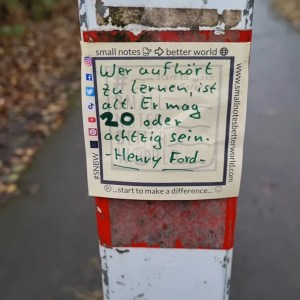 small notes → better world
Wer aufhört
zu lernen, ist
alt. Er mag
20 oder
achtzig sein.
-Henry Ford-
...start to make a difference...
#SNBW
www.smallnotesbetterworld.com